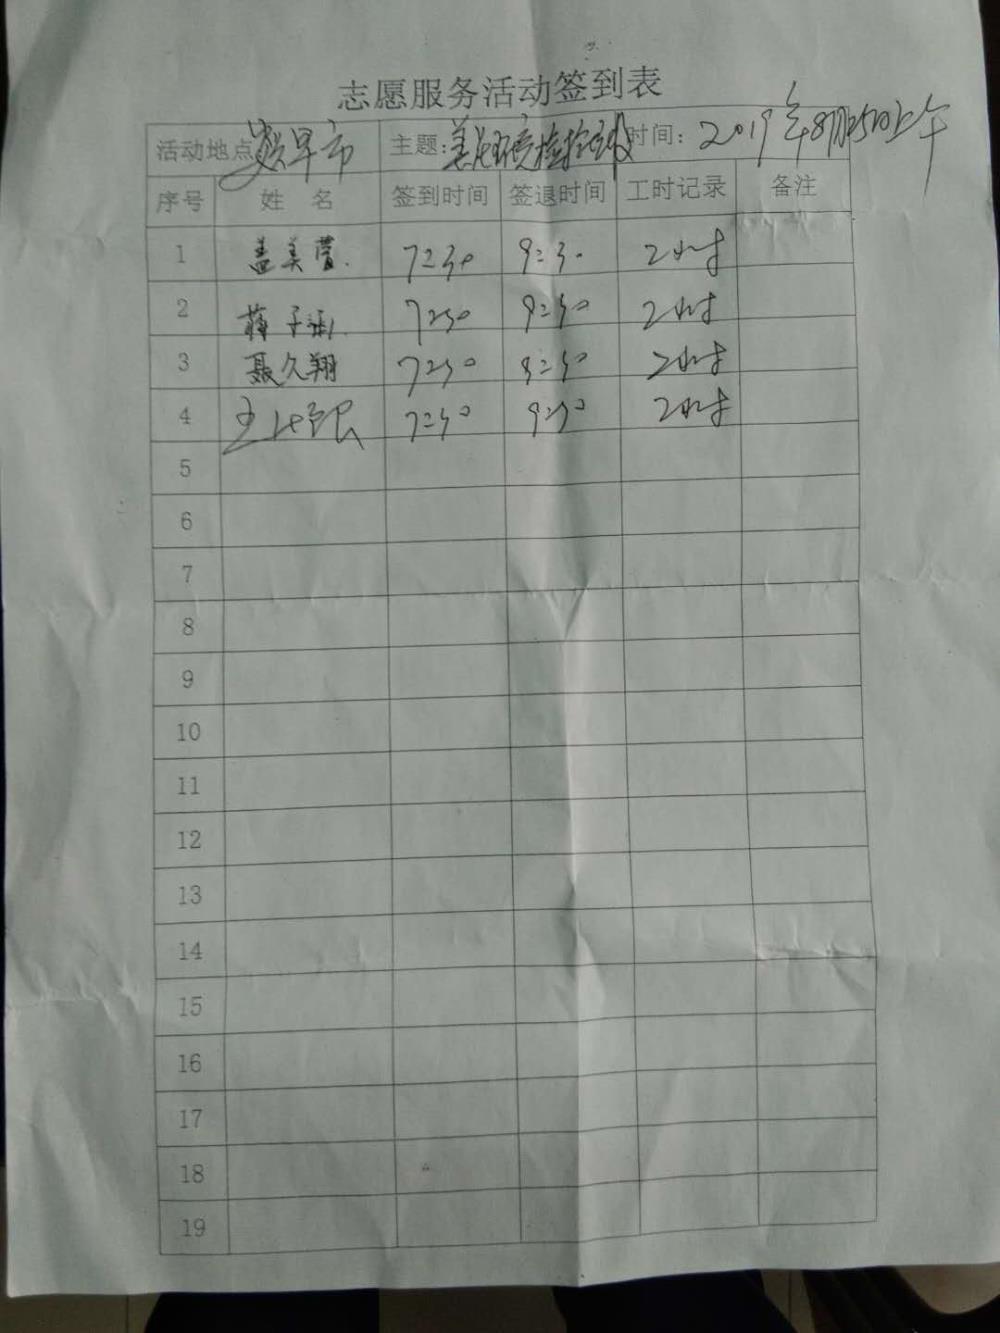 志愿服务活动签到表
活动地点 早市 主题：美化环境捡垃圾 时间：2019年8月25日上午
序号 姓 名 签到时间 签退时间 工时记录 备注
1 盖美萱 7:30 9:30 2小时
2 蒋子涵 7:30 9:30 2小时
3 聂久翔 7:30 9:30 2小时
4 王 强 7:30 9:30 2小时
5
6
7
8
9
10
11
12
13
14
15
16
17
18
19